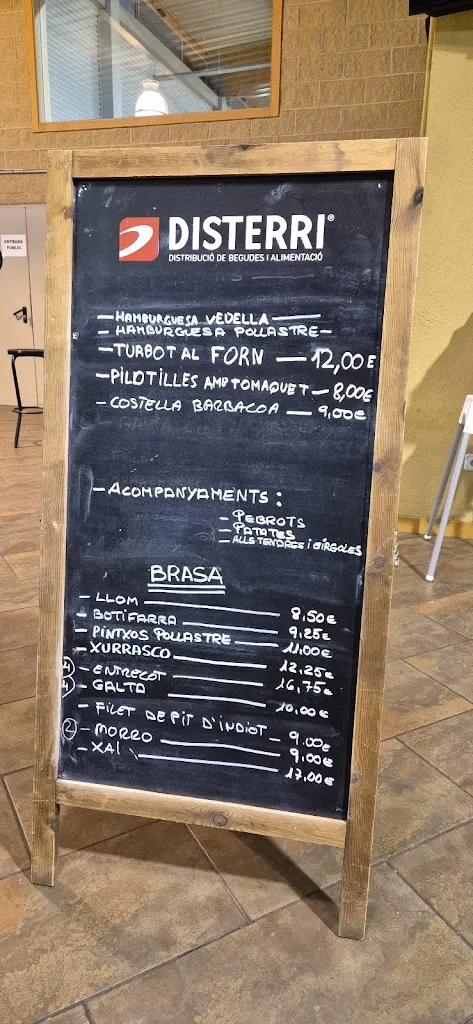 DISTERRI®
DISTRIBUCIÓ DE BEGUDES I ALIMENTACIÓ
ENTRADA PÚBLIC
- HAMBURGUESA VEDELLA —
- HAMBURGUESA POLLASTRE -
- TURBOT AL FORN — 12,00€
- PILOTILLES AMB TOMAQUET - 8,00€
- COSTELLA BARBACOA — 9,00€
- ACOMPANYAMENTS:
- PEBROTS
- PATATES
- ALLS TENDRES I GIRGOLES
BRASA
- LLOM — 8,50€
- BOTIFARRA — 9,25€
- PINTXOS POLLASTRE — 11,00€
- XURRASCO — 12,25€
4 - ENTRECOT — 16,75€
4 - GALTA — 10,00€
- FILET DE PIT D'INDIOT - 9,00€
2 - MORRO — 9,00€
- XAI — 17,00€